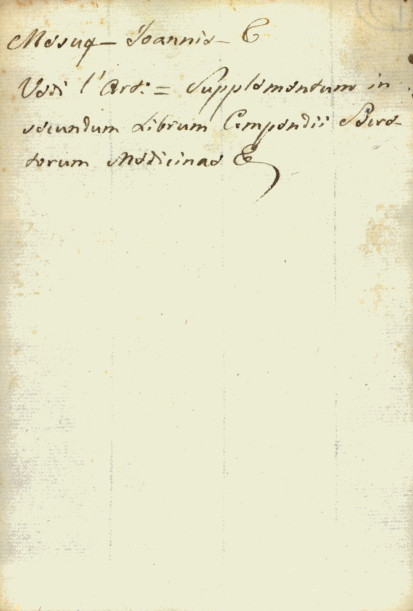 Mesuæ - Joannis - &
Vedi l'Art: = Supplementum in
secundum Librum Compendii Secre-
torum Medicinae &